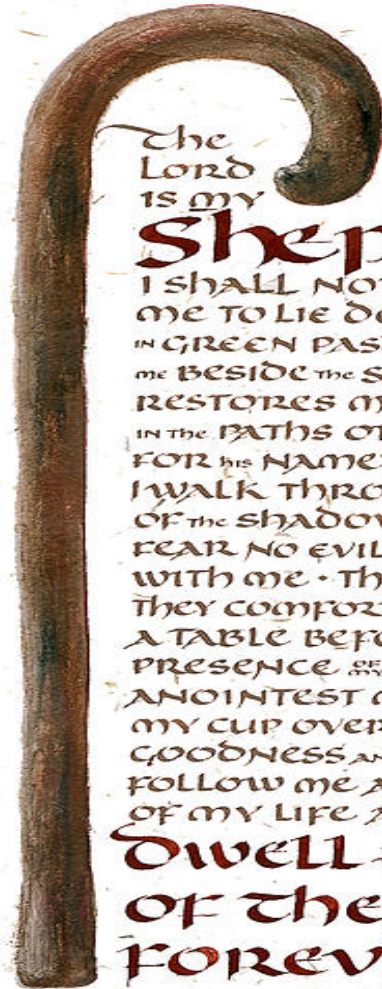 The
LORD
IS MY
Shep
I SHALL NO
ME TO LIE DO
IN GREEN PAS
ME BESIDE THE S
RESTORES M
IN THE PATHS O
FOR his NAME
I WALK THRO
OF THE SHADO
FEAR NO EVIL
WITH ME · Th
THEY COMFOR
A TABLE BEFO
PRESENCE OF MY
ANOINTEST
MY CUP OVER
GOODNESS AN
FOLLOW ME A
OF MY LIFE A
DWELL
OF The
FOREV